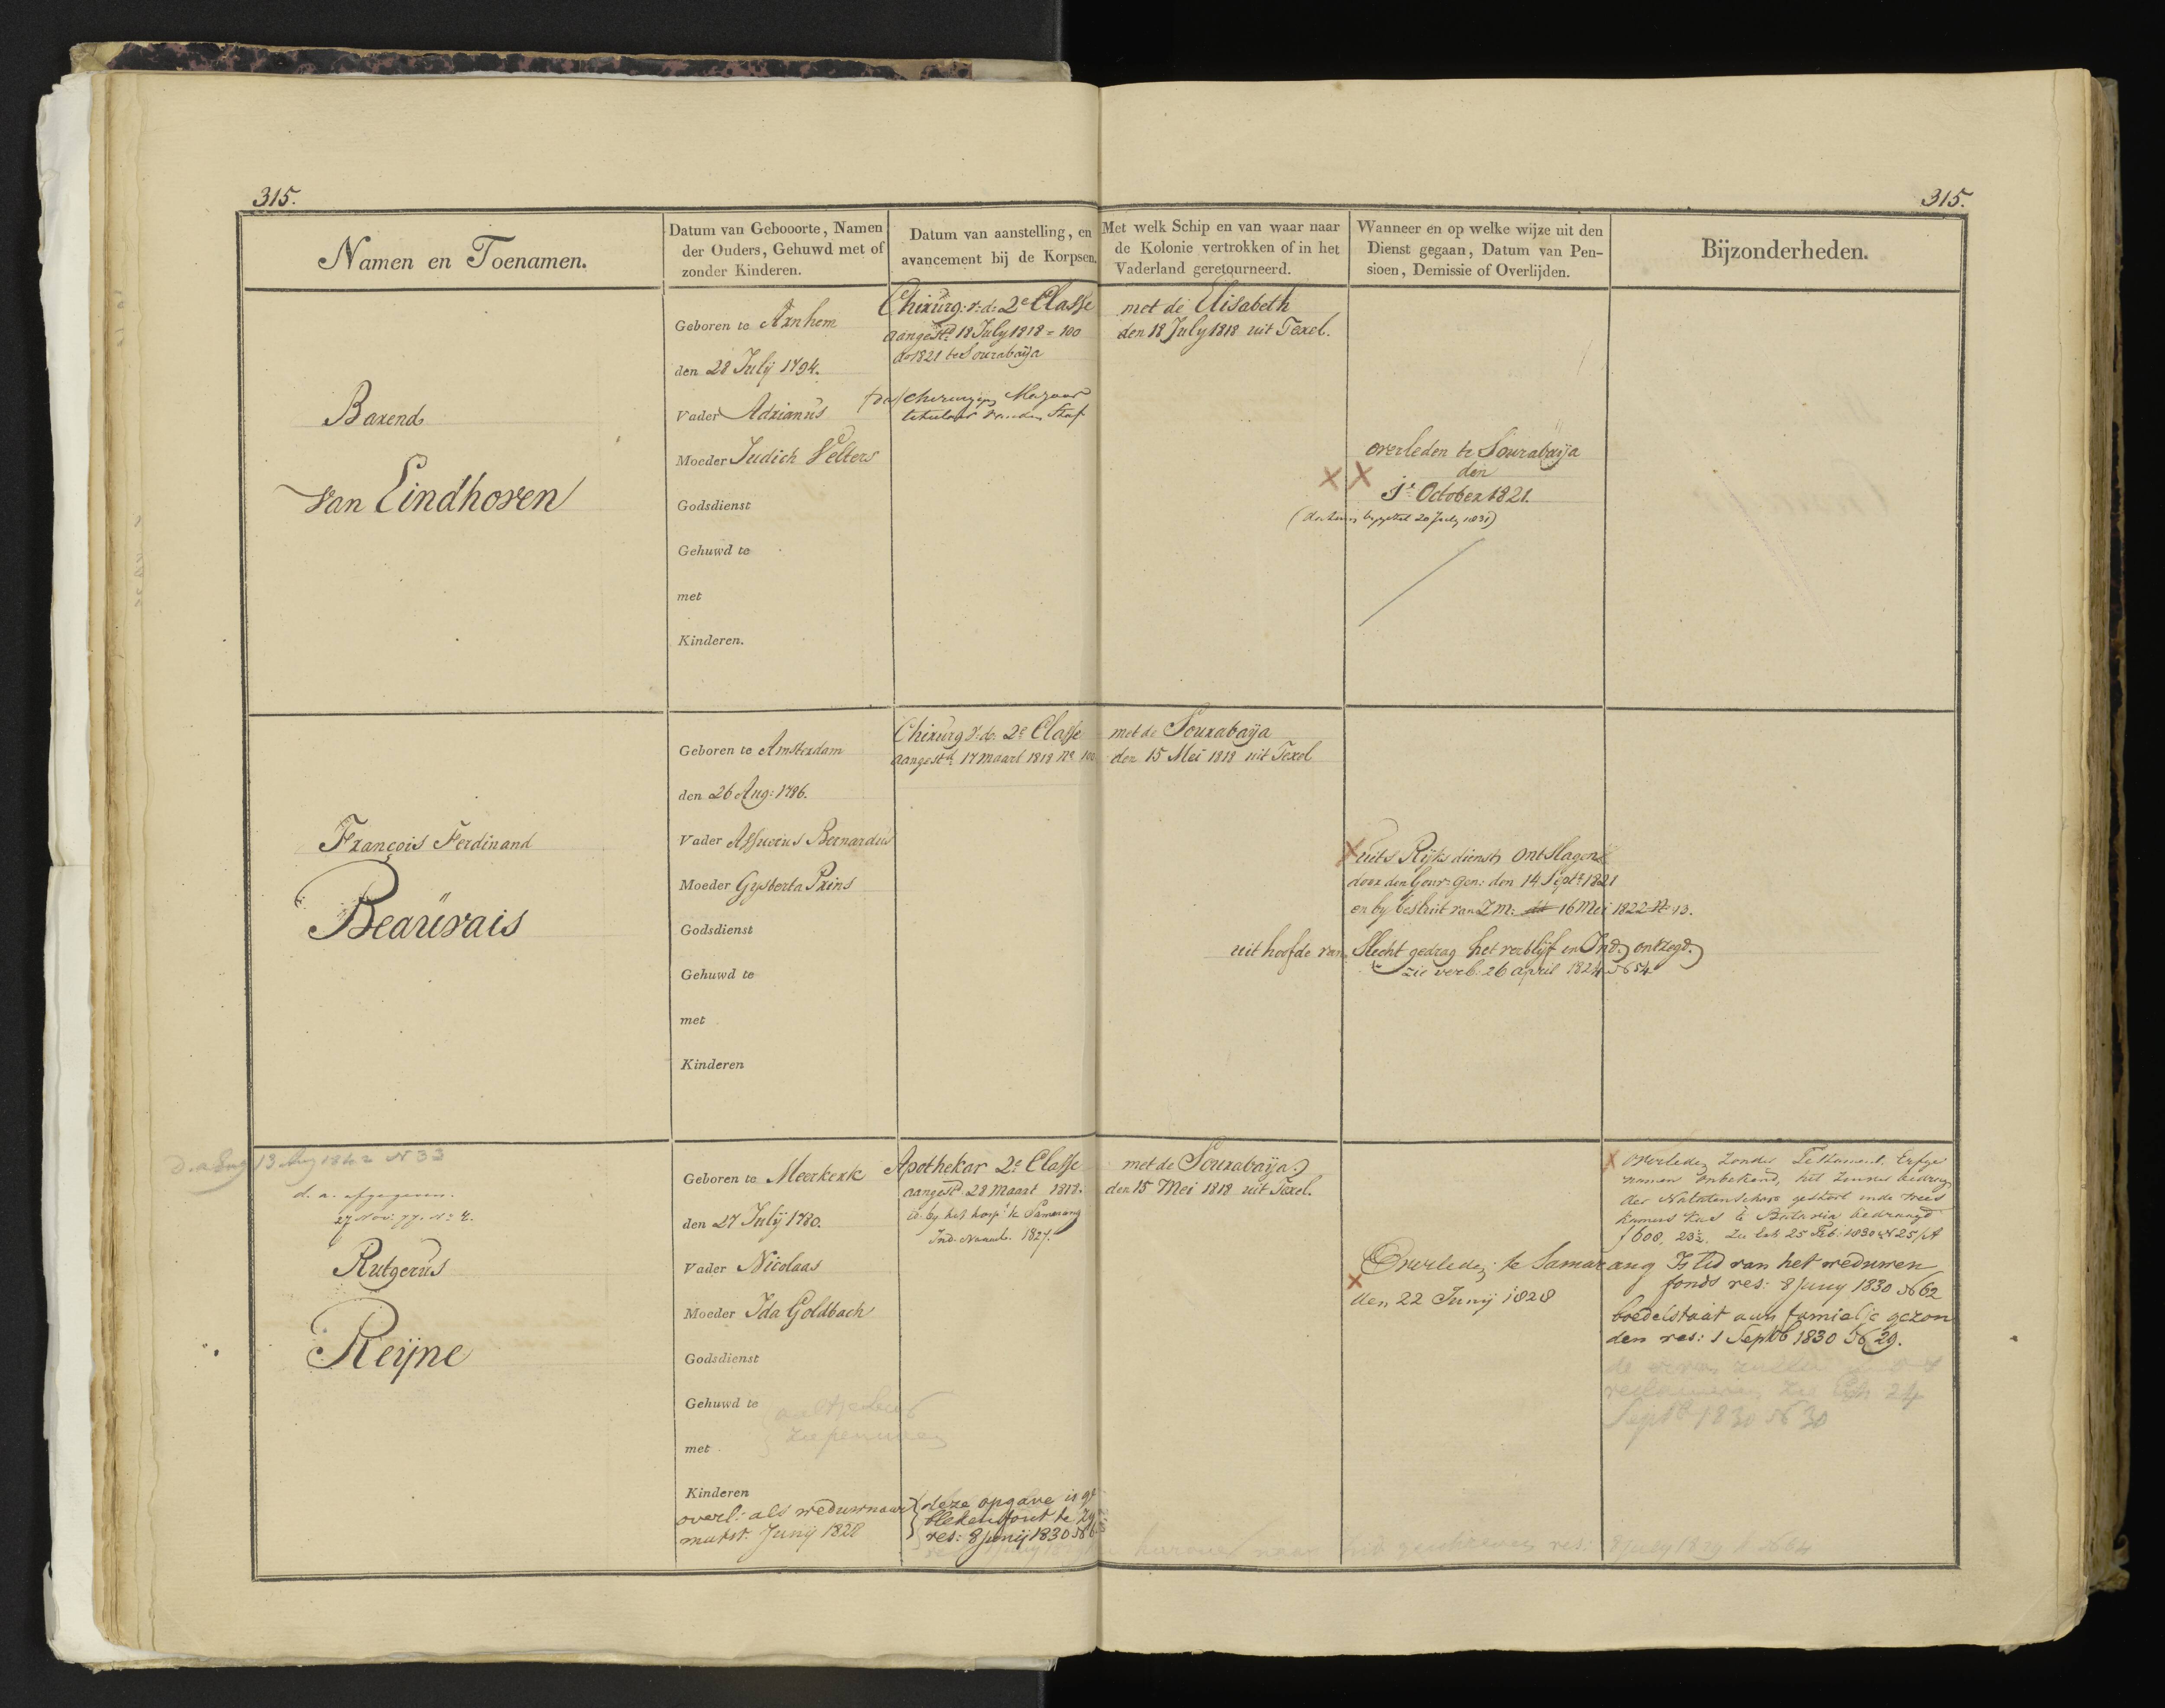 315.
315.
Namen en Toenamen.
Datum van Gebooorte, Namen
der Ouders, Gehuwd met of
zonder Kinderen.
Datum van aanstelling, en
avancement bij de Korpsen.
Met welk Schip en van waar naar
de Kolonie vertrokken of in het
Vaderland geretourneerd.
Wanneer en op welke wijze uit den
Dienst gegaan, Datum van Pen-
sioen, Demissie of Overlijden.
Bijzonderheden.
Barend
van Eindhoven
Geboren te Arnhem
den 28 Julij 1794.
Vader Adrianus
Moeder Judich Velters
Godsdienst
Gehuwd te
met
Kinderen.
Chirurg: v: d: 2e Classe
aangestd 18 July 1818 = 100
ao 1821 te Sourabaija
chirurgijn Majoor
titulair van den Staf
met de Elisabeth
den 18 July 1818 uit Texel.
overleden te Sourabaija
den
1e October 1821.
20 July 1831)
François Ferdinand
Beauvais
Geboren te Amsterdam
den 26 Aug: 1786.
Vader Assuerus Bernardus
Moeder Gysberta Prins
Godsdienst
Gehuwd te
met
Kinderen
Chirurg v: d: 2e Classe
aangestd 17 maart 1818 No 100
met de Sourabaija
den 15 Mei 1818 uit Texel
uit s Rijks dienst ontslagen
door den Gouv: Gen: den 14 Septr 1821
en by besluit van Z M: 16 Mei 1822 No 13.
uit hoofde van slecht gedrag het verblijf in Ind. ontzegd.
zie verb: 26 april 1824 No 54
13 Aug 1842 N 33
d. a. afgegeven.
27 Nov: 77. No 4.
Rutgerus
Reijne
Geboren te Meerkerk
den 27 Julij 1780.
Vader Nicolaas
Moeder Ida Goldbach
Godsdienst
Gehuwd te
met
Kinderen
overl: als weduwnaar
mutst. Junij 1828
Apothekar 2e Classe
aangestd 28 Maart 1818.
id. by het hosp: te Samarang
Ind. Naaml. 1827.
deze opgave is ge
bleken fout te zijn
res: 8 junij 1830 No 6
met de Sourabaija
den 15 Mei 1818 uit Texel.
Overleden te Samarang
den 22 Junij 1828
overleden zonder Testament. Erfge
namen onbekend, het zuiver bedrag
der Nalatenschap gestort in de Wees
kamers kas te Batavia bedraagt
f 608, 23½. Zie 25 Feb: 1830 No 25/A
Is lid van het weduwen
fonds res: 8 Juny 1830 No 62
boedelstaat aan familie gezon
den res: 1 Septb 1830 No 29.
de erven
reclameren zie 24
Septb 1830 No 30